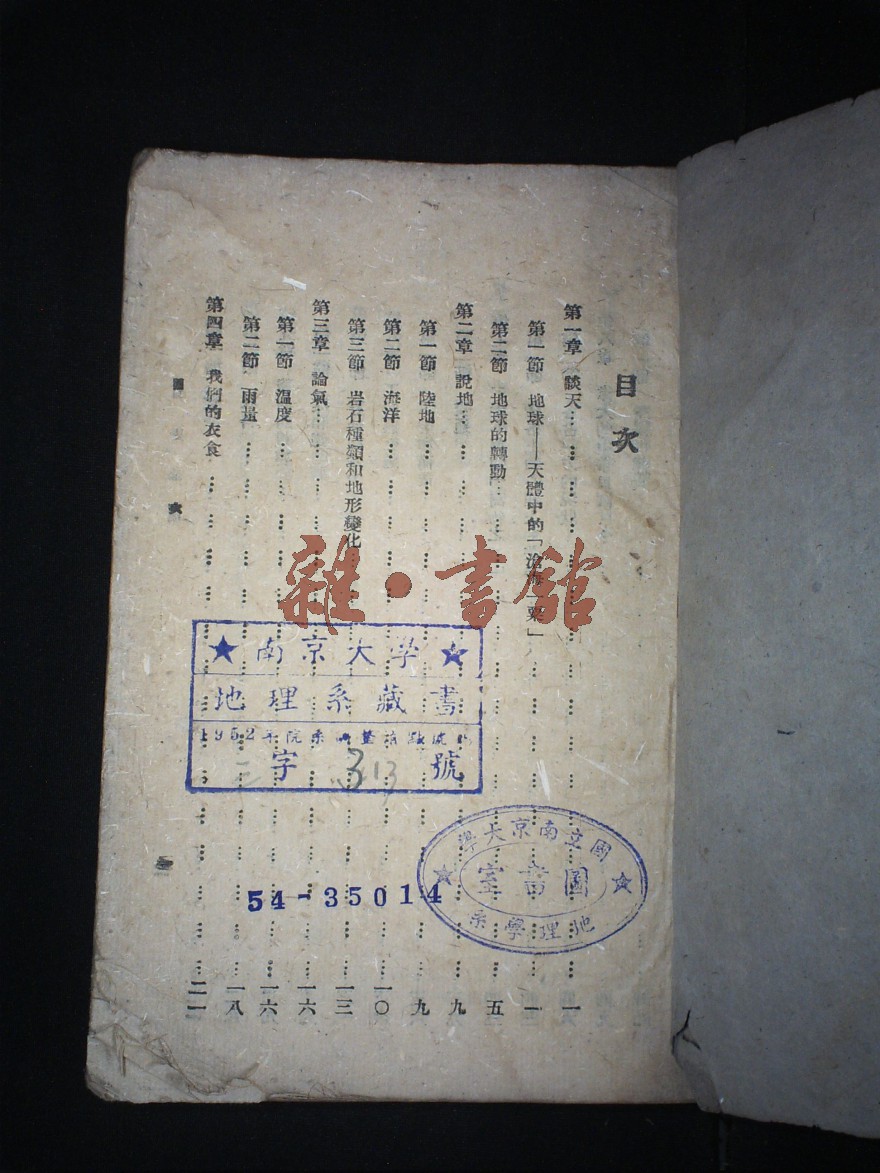 目次
第一章 談天 一
第一節 地球——天體中的「滄海一粟」 一
第二節 地球的轉動 五
第二章 說地 九
第一節 陸地 九
第二節 海洋 一〇
第三節 岩石種類和地形變化 一三
第三章 論氣 一六
第一節 溫度 一六
第二節 雨量 一八
第四章 我們的衣食 二一
目次
一
雜·書館
★南京大学★
地理系藏書
1952年院系調整
字 313 號
國立南京大學
圖書室
地理學系
54-35014